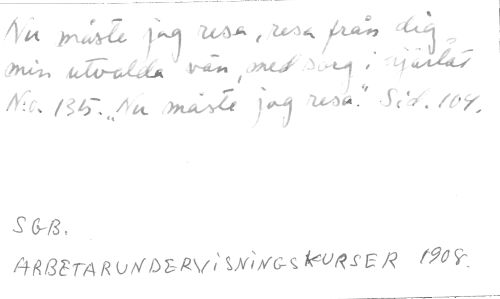 Nu måste jag resa, resa från dig,
min utvalda vän, med sorg i hjärtat
N:o. 135. „Nu måste jag resa." Sid. 104.
SGB.
ARBETARUNDERVISNINGSKURSER 1908.